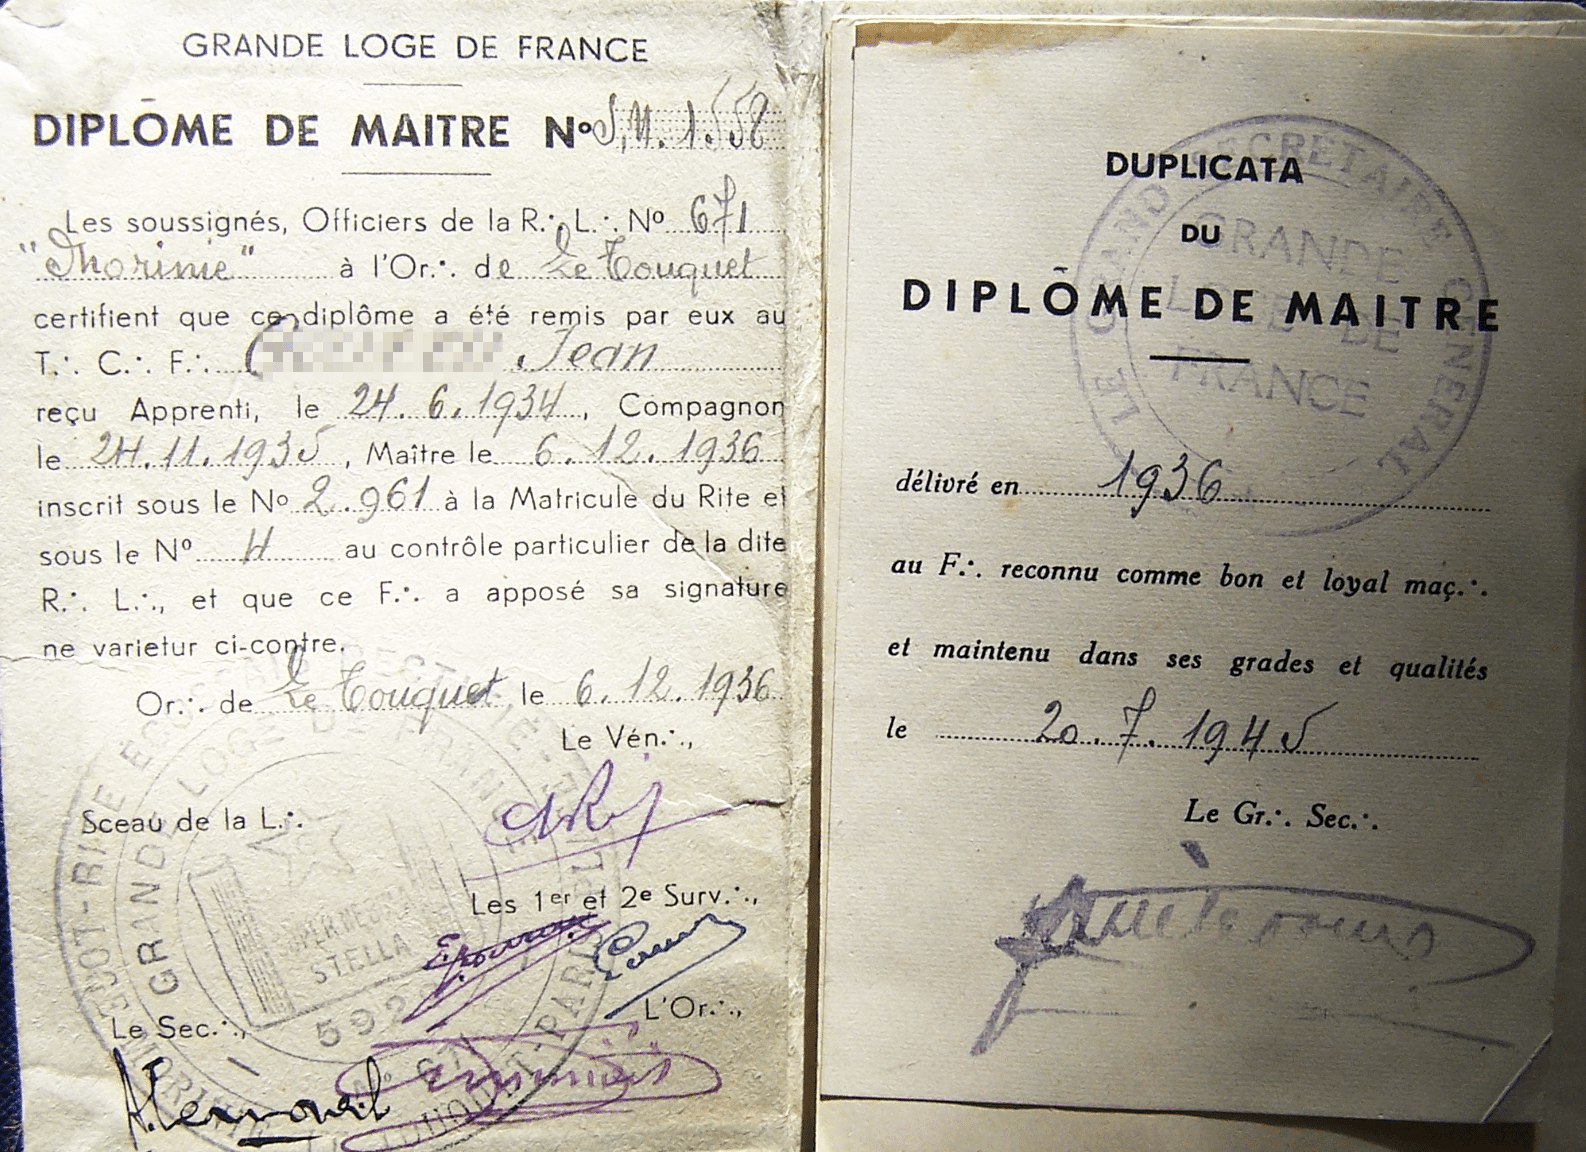 GRANDE LOGE DE FRANCE
DIPLÔME DE MAITRE No S.M. 1.558
Les soussignés, Officiers de la R∴ L∴ No 671
"Morinie" à l'Or∴ de Le Touquet
certifient que ce diplôme a été remis par eux au
T∴ C∴ F∴ Jean
reçu Apprenti, le 24.6.1934, Compagnon
le 24.11.1935, Maître le 6.12.1936
inscrit sous le No 2.961 à la Matricule du Rite et
sous le No 4 au contrôle particulier de la dite
R∴ L∴, et que ce F∴ a apposé sa signature
ne varietur ci-contre.
Or∴ de Le Touquet le 6.12.1936
Le Vén∴,
Sceau de la L∴
Les 1er et 2e Surv∴,
L'Or∴,
Le Sec∴,
GRANDE LOGE DE FRANCE
STELLA
592
No 671
MORINIE LE TOUQUET-PARIS-PL
DUPLICATA
DU
DIPLÔME DE MAITRE
LE GRAND SECRETAIRE GENERAL
GRANDE
LOGE DE
FRANCE
délivré en 1936
au F∴ reconnu comme bon et loyal maç∴
et maintenu dans ses grades et qualités
le 20.7.1945
Le Gr∴ Sec∴